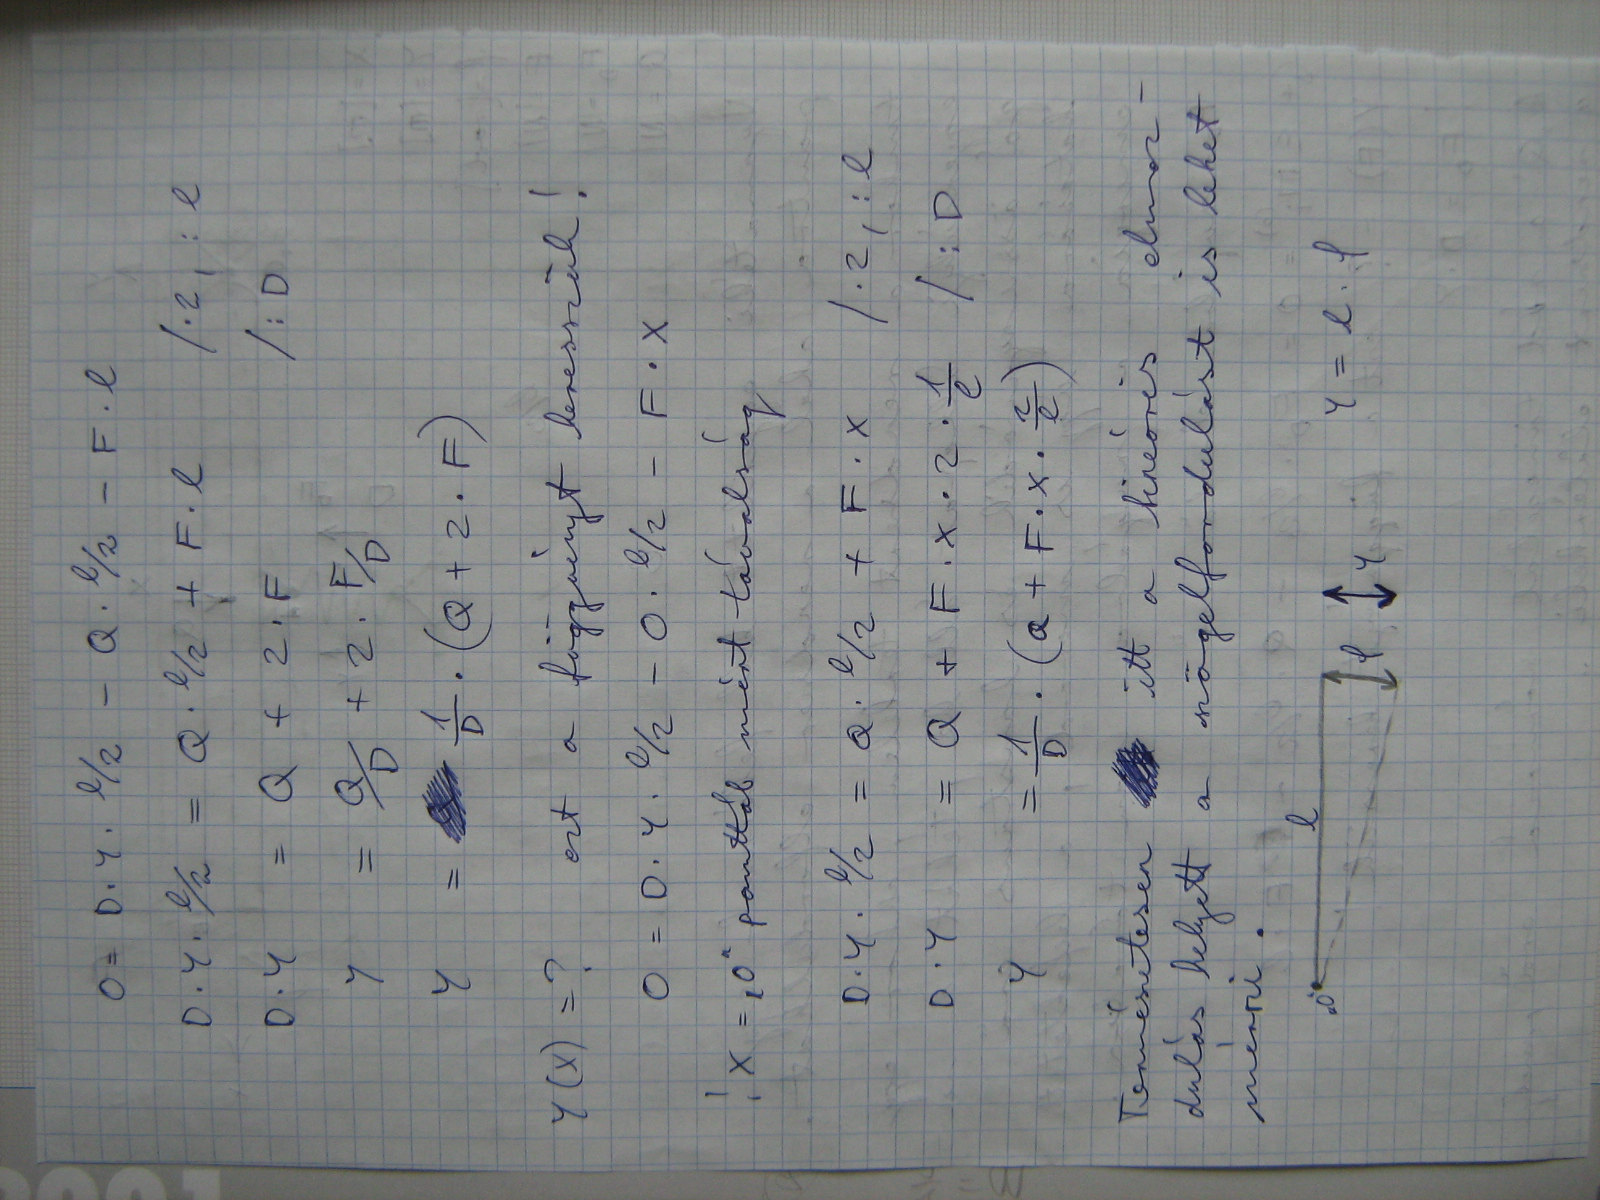 0 = D·y·l/2 − Q·l/2 − F·l
D·y·l/2 = Q·l/2 + F·l /·2, :l
D·y = Q + 2·F /:D
y = Q/D + 2·F/D
y = 1/D·(Q + 2·F)
y(x) = ? ezt a függvényt keressük!
0 = D·y·l/2 − Q·l/2 − F·x
! x = „0" ponttól mért távolság
D·y·l/2 = Q·l/2 + F·x /·2, :l
D·y = Q + F·x·2·1/l /:D
y = 1/D·(Q + F·x·2/l)
Természetesen itt a lineáris elmoz-
dulás helyett a szögelfordulást is lehet
mérni.
„0" l φ y y = l·φ